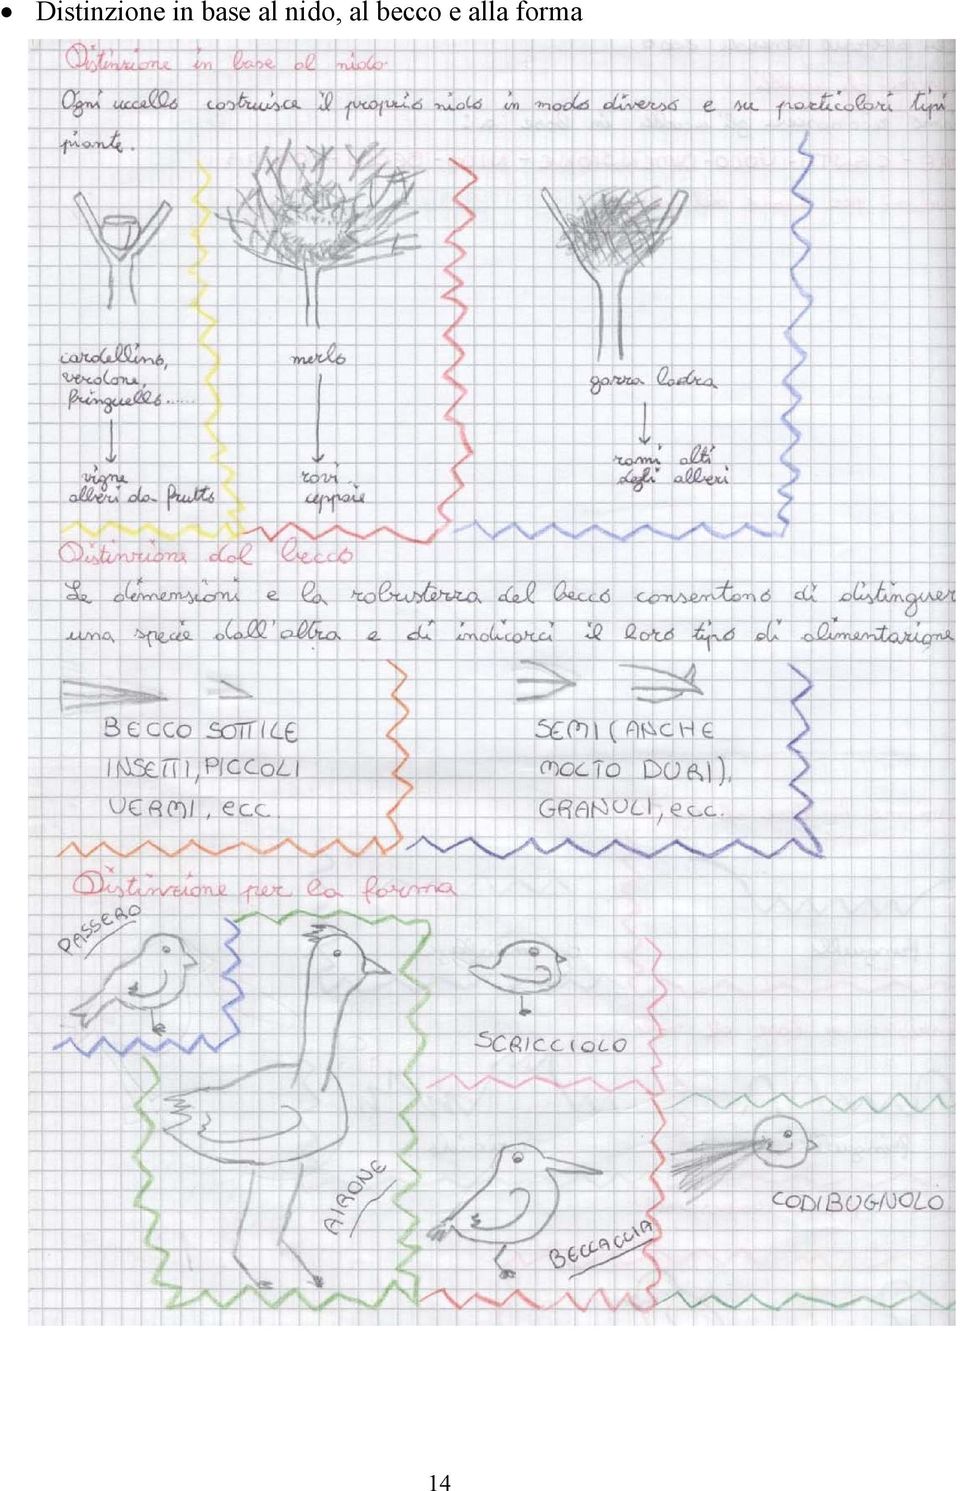 • Distinzione in base al nido, al becco e alla forma
Distinzione in base al nido
Ogni uccello costruisce il proprio nido in modo diverso e su particolari tipi
piante.
cardellino,
verdone,
fringuello......
vigne
alberi da frutto
merlo
rovi
ceppaie
gazza ladra
rami alti
degli alberi
Distinzione dal becco
Le dimensioni e la robustezza del becco consentono di distinguer
una specie dall'altra e di indicarci il loro tipo di alimentazione
BECCO SOTTILE
INSETTI, PICCOLI
VERMI, ecc.
SEMI (ANCHE
MOLTO DURI),
GRANULI, ecc.
Distinzione per la forma
PASSERO
SCRICCIOLO
AIRONE
BECCACCIA
CODIBUGNOLO
14